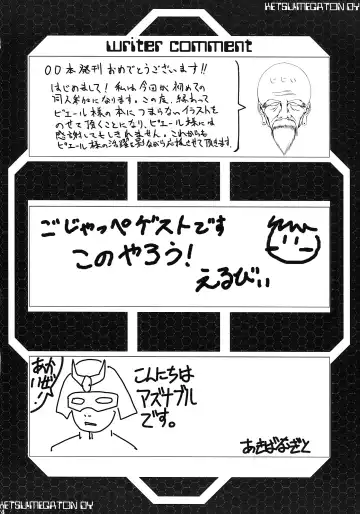 KETSUMEGATON OY
writer comment
00本発刊おめでとうございます!!
はじめまして!私は今回が初めての
同人参加になります。この度、縁あって
ピエール様の本につまらないイラストを
のせて頂くことになり、ピエール様には
感謝してもしきれません。これからも
ピエール様の活躍を影ながら応援させて頂きます。
ごじゃっぺゲストです
このやろう!
えるびぃ
あかいぜ!!
こんにちは
アズナブル
です。
あきばなざと
KETSUMEGATON OY